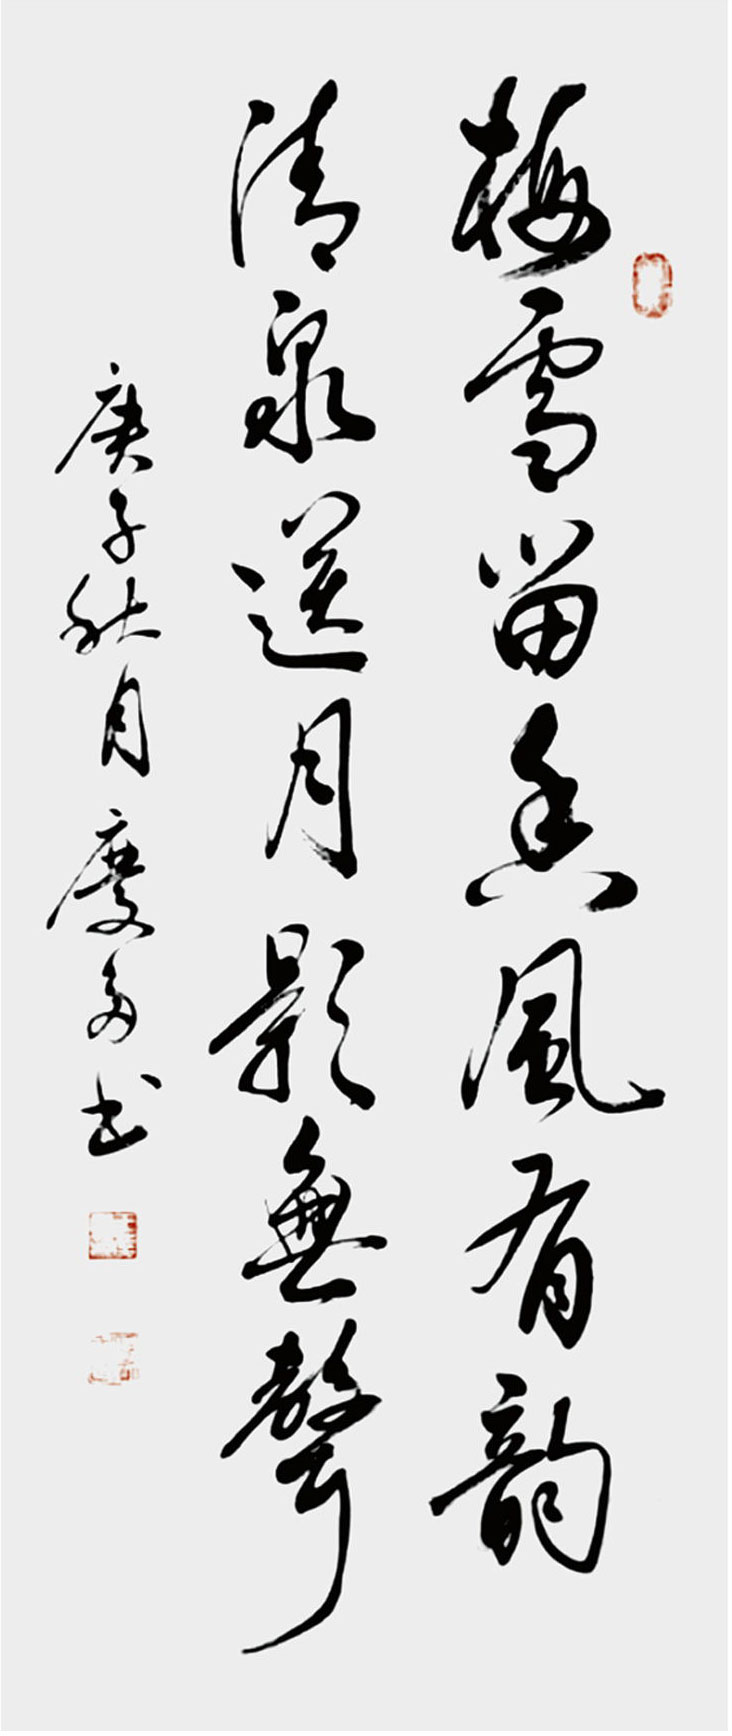 梅雪留香風有韵
清泉送月影無聲
庚子秋月慶多书